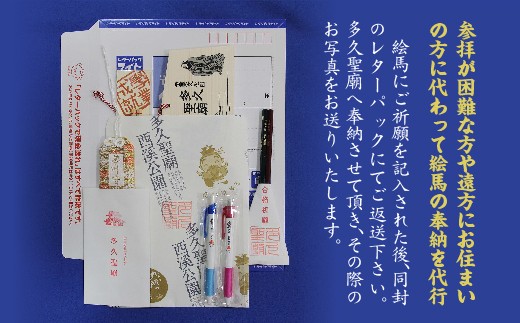 参拝が困難な方や遠方にお住まい
の方に代わって絵馬の奉納を代行
絵馬にご祈願を記入された後、同封
のレターパックにてご返送下さい。
多久聖廟へ奉納させて頂き、その際の
お写真をお送りいたします。
レターパック
ライト
「レターパックで現金送れ」はすべて詐欺です。
多久聖廟
多久聖廟
西渓公園
多久聖廟
西渓公園
多久聖廟
合格祈願